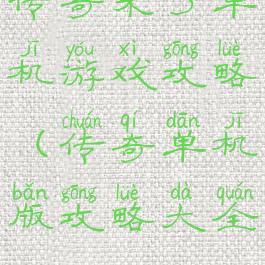 传奇来了单
jī yóu xì gōng lüè
机游戏攻略
chuán qí dān jī
（传奇单机
bǎn gōng lüè dà quán
版攻略大全